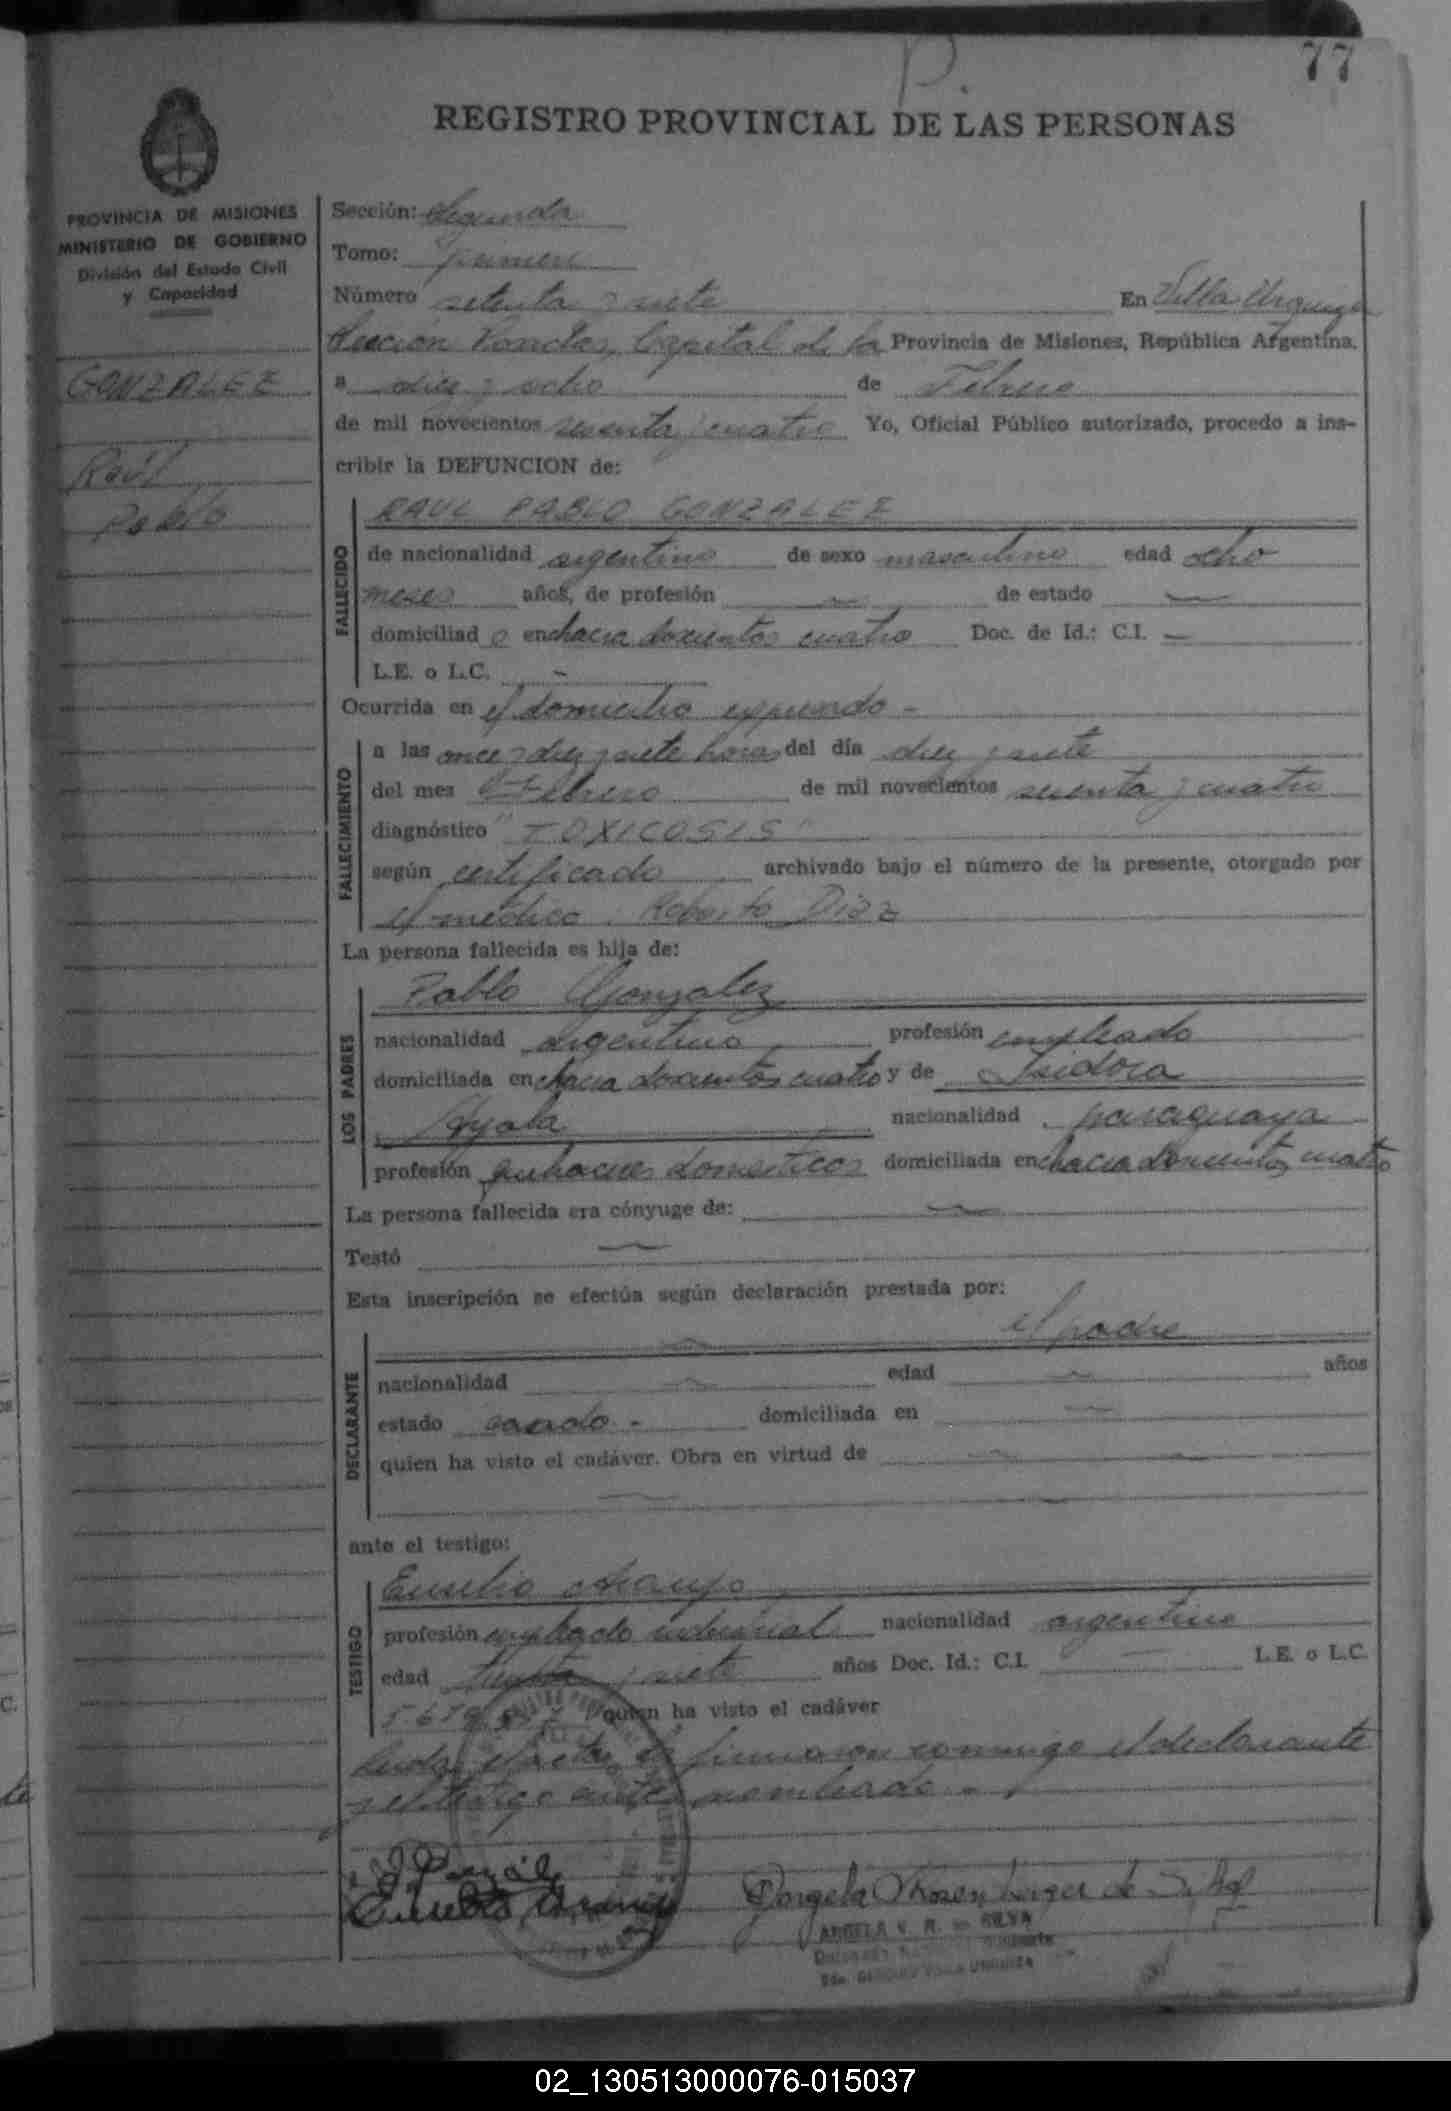 77
REGISTRO PROVINCIAL DE LAS PERSONAS
PROVINCIA DE MISIONES
MINISTERIO DE GOBIERNO
División del Estado Civil
y Capacidad
GONZALEZ
Raúl
Pablo
Sección: Segunda
Tomo: primero
Número setenta y siete En Villa Urquiza
Sección Posadas, Capital de la Provincia de Misiones, República Argentina,
a diez y ocho de Febrero
de mil novecientos sesenta y cuatro Yo, Oficial Público autorizado, procedo a ins-
cribir la DEFUNCION de:
FALLECIDO
RAUL PABLO GONZALEZ
de nacionalidad argentino de sexo masculino edad ocho
meses años, de profesión — de estado —
domiciliad o en chacra doscientos cuatro Doc. de Id.: C.I. —
L.E. o L.C. —
Ocurrida en el domicilio expresado -
FALLECIMIENTO
a las once y diez y siete horas del día diez y siete
del mes Febrero de mil novecientos sesenta y cuatro
diagnóstico "TOXICOSIS"
según certificado archivado bajo el número de la presente, otorgado por
el médico Roberto Diaz
La persona fallecida es hija de:
LOS PADRES
Pablo Gonzalez
nacionalidad argentino profesión empleado
domiciliada en chacra doscientos cuatro y de Isidora
Ayala nacionalidad paraguaya
profesión quehaceres domesticos domiciliada en chacra doscientos cuatro
La persona fallecida era cónyuge de: —
Testó —
Esta inscripción se efectúa según declaración prestada por:
DECLARANTE
— el padre
nacionalidad — edad — años
estado casado - domiciliada en —
quien ha visto el cadáver. Obra en virtud de —
ante el testigo:
TESTIGO
Eusebio Araujo
profesión empleado industrial nacionalidad argentino
edad treinta y siete años Doc. Id.: C.I. — L.E. o L.C.
quien ha visto el cadáver
Leida el acta, la firmaron conmigo el declarante
y el testigo antes nombrado. -
Eusebio Araujo
Angela Rosenberger de Silva
ANGELA V. R. de SILVA
VILLA URQUIZA
02_130513000076-015037